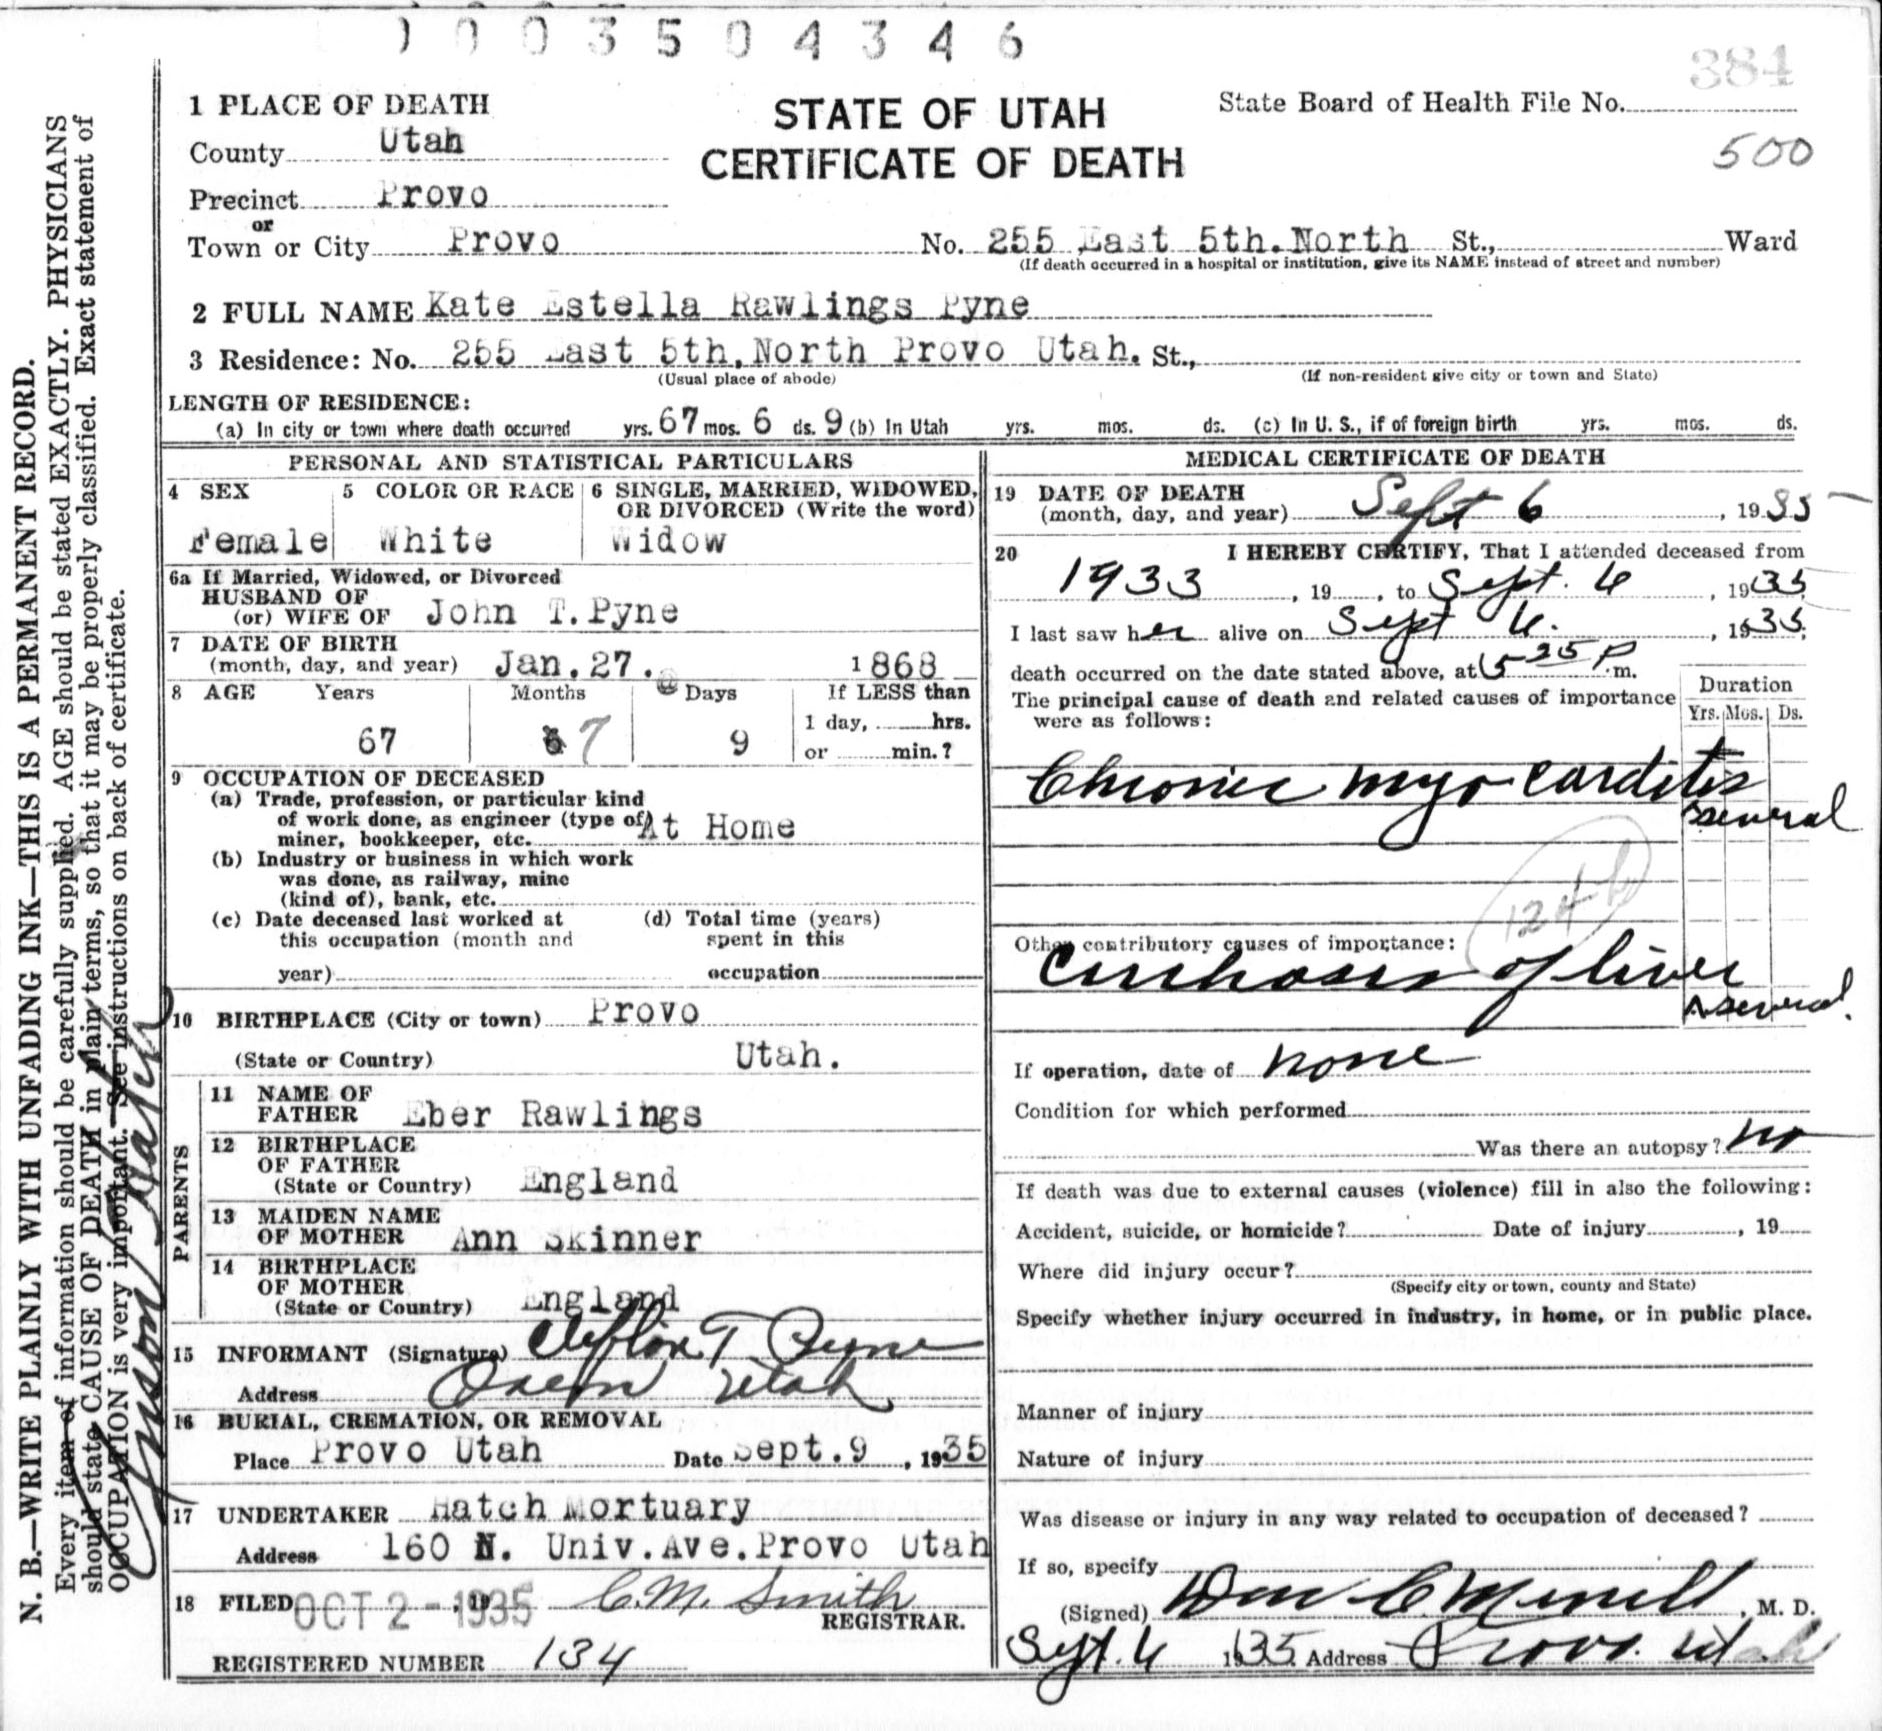 1003504346
384
1 PLACE OF DEATH
STATE OF UTAH
CERTIFICATE OF DEATH
State Board of Health File No.
500
County Utah
Precinct Provo
or
Town or City Provo No. 255 East 5th. North St., Ward
(If death occurred in a hospital or institution, give its NAME instead of street and number)
2 FULL NAME Kate Estella Rawlings Pyne
3 Residence: No. 255 East 5th. North Provo Utah. St.,
(Usual place of abode) (If non-resident give city or town and State)
LENGTH OF RESIDENCE:
(a) In city or town where death occurred yrs. 67 mos. 6 ds. 9 (b) In Utah yrs. mos. ds. (c) In U. S., if of foreign birth yrs. mos. ds.
PERSONAL AND STATISTICAL PARTICULARS
4 SEX 5 COLOR OR RACE 6 SINGLE, MARRIED, WIDOWED, OR DIVORCED (Write the word)
Female White Widow
6a If Married, Widowed, or Divorced
HUSBAND OF
(or) WIFE OF John T. Pyne
7 DATE OF BIRTH
(month, day, and year) Jan. 27. 1868
8 AGE Years Months Days If LESS than
1 day, hrs.
67 7 9 or min.?
9 OCCUPATION OF DECEASED
(a) Trade, profession, or particular kind
of work done, as engineer (type of)
miner, bookkeeper, etc. At Home
(b) Industry or business in which work
was done, as railway, mine
(kind of), bank, etc.
(c) Date deceased last worked at (d) Total time (years)
this occupation (month and spent in this
year) occupation
10 BIRTHPLACE (City or town) Provo
(State or Country) Utah.
PARENTS
11 NAME OF
FATHER Eber Rawlings
12 BIRTHPLACE
OF FATHER
(State or Country) England
13 MAIDEN NAME
OF MOTHER Ann Skinner
14 BIRTHPLACE
OF MOTHER
(State or Country) England
15 INFORMANT (Signature) Clifton T Pyne
Address Orem Utah
16 BURIAL, CREMATION, OR REMOVAL
Place Provo Utah Date Sept. 9, 1935
17 UNDERTAKER Hatch Mortuary
Address 160 N. Univ. Ave. Provo Utah
18 FILED OCT 2 - 1935 C.M. Smith
REGISTRAR.
REGISTERED NUMBER 134
MEDICAL CERTIFICATE OF DEATH
19 DATE OF DEATH
(month, day, and year) Sept 6, 1935
20 I HEREBY CERTIFY, That I attended deceased from
1933, 19, to Sept. 6, 1935
I last saw her alive on Sept 6., 1935,
death occurred on the date stated above, at 5 25 P m.
The principal cause of death and related causes of importance
were as follows:
Duration
Yrs. Mos. Ds.
Chronic myo carditis
several
Other contributory causes of importance:
Cirrhosis of liver
several.
If operation, date of none
Condition for which performed
Was there an autopsy? no
If death was due to external causes (violence) fill in also the following:
Accident, suicide, or homicide? Date of injury, 19
Where did injury occur?
(Specify city or town, county and State)
Specify whether injury occurred in industry, in home, or in public place.
Manner of injury
Nature of injury
Was disease or injury in any way related to occupation of deceased?
If so, specify
(Signed) Don C Merrill, M. D.
Sept. 6 1935 Address Provo. Utah
N. B.—WRITE PLAINLY WITH UNFADING INK—THIS IS A PERMANENT RECORD.
Every item of information should be carefully supplied. AGE should be stated EXACTLY. PHYSICIANS
should state CAUSE OF DEATH in plain terms, so that it may be properly classified. Exact statement of
OCCUPATION is very important. See instructions on back of certificate.
Hatch